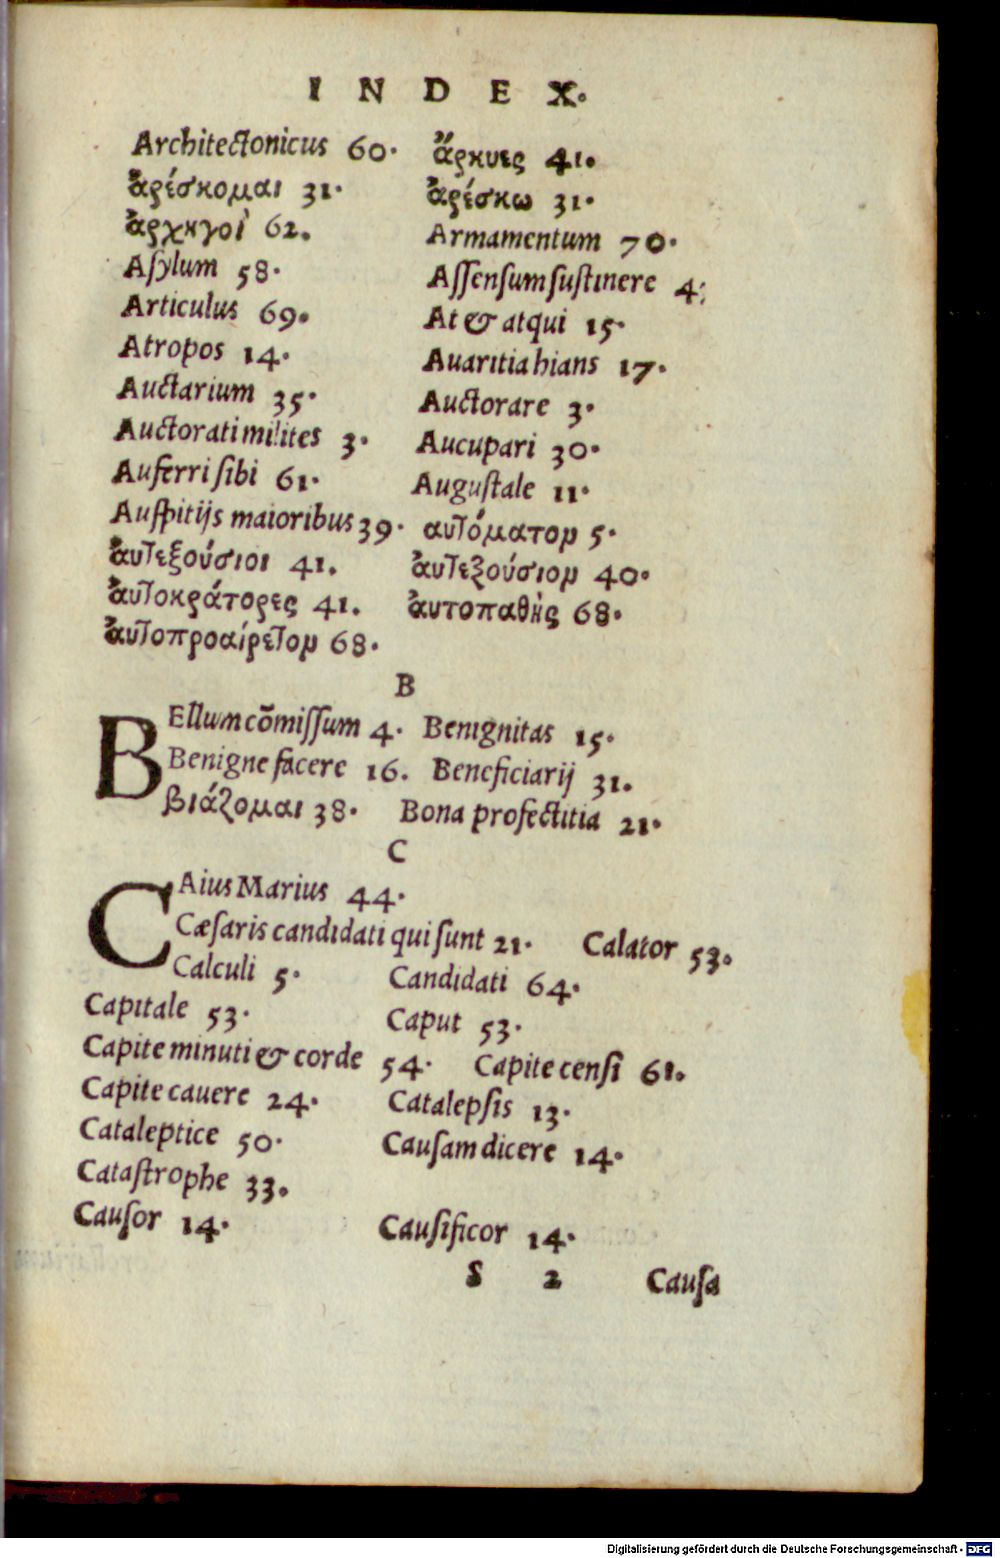 INDEX.
Architectonicus 60. ἄρκυες 41.
ἀρέσκομαι 31. ἀρέσκω 31.
ἀρχηγοὶ 62. Armamentum 70.
Aſylum 58. Aſſenſum ſuſtinere 4
Articulus 69. At & atqui 15.
Atropos 14. Auaritia hians 17.
Auctarium 35. Auctorare 3.
Auctorati milites 3. Aucupari 30.
Auferri ſibi 61. Auguſtale 11.
Auſpitijs maioribus 39. αυτόματον 5.
ἀυτεξούσιοι 41. ἀυτεξούσιον 40.
ἀυτοκράτορες 41. ἀυτοπαθὴς 68.
ἀυτοπροαίρετον 68.
B
BEllum cōmiſſum 4. Benignitas 15.
Benigne facere 16. Beneficiarij 31.
βιάζομαι 38. Bona profectitia 21.
C
CAius Marius 44.
Cæſaris candidati qui ſunt 21. Calator 53.
Calculi 5. Candidati 64.
Capitale 53. Caput 53.
Capite minuti & corde 54. Capite cenſi 61.
Capite cauere 24. Catalepſis 13.
Cataleptice 50. Cauſam dicere 14.
Cataſtrophe 33.
Cauſor 14. Cauſificor 14.
S 2 Cauſa
Digitalisierung gefördert durch die Deutsche Forschungsgemeinschaft - DFG